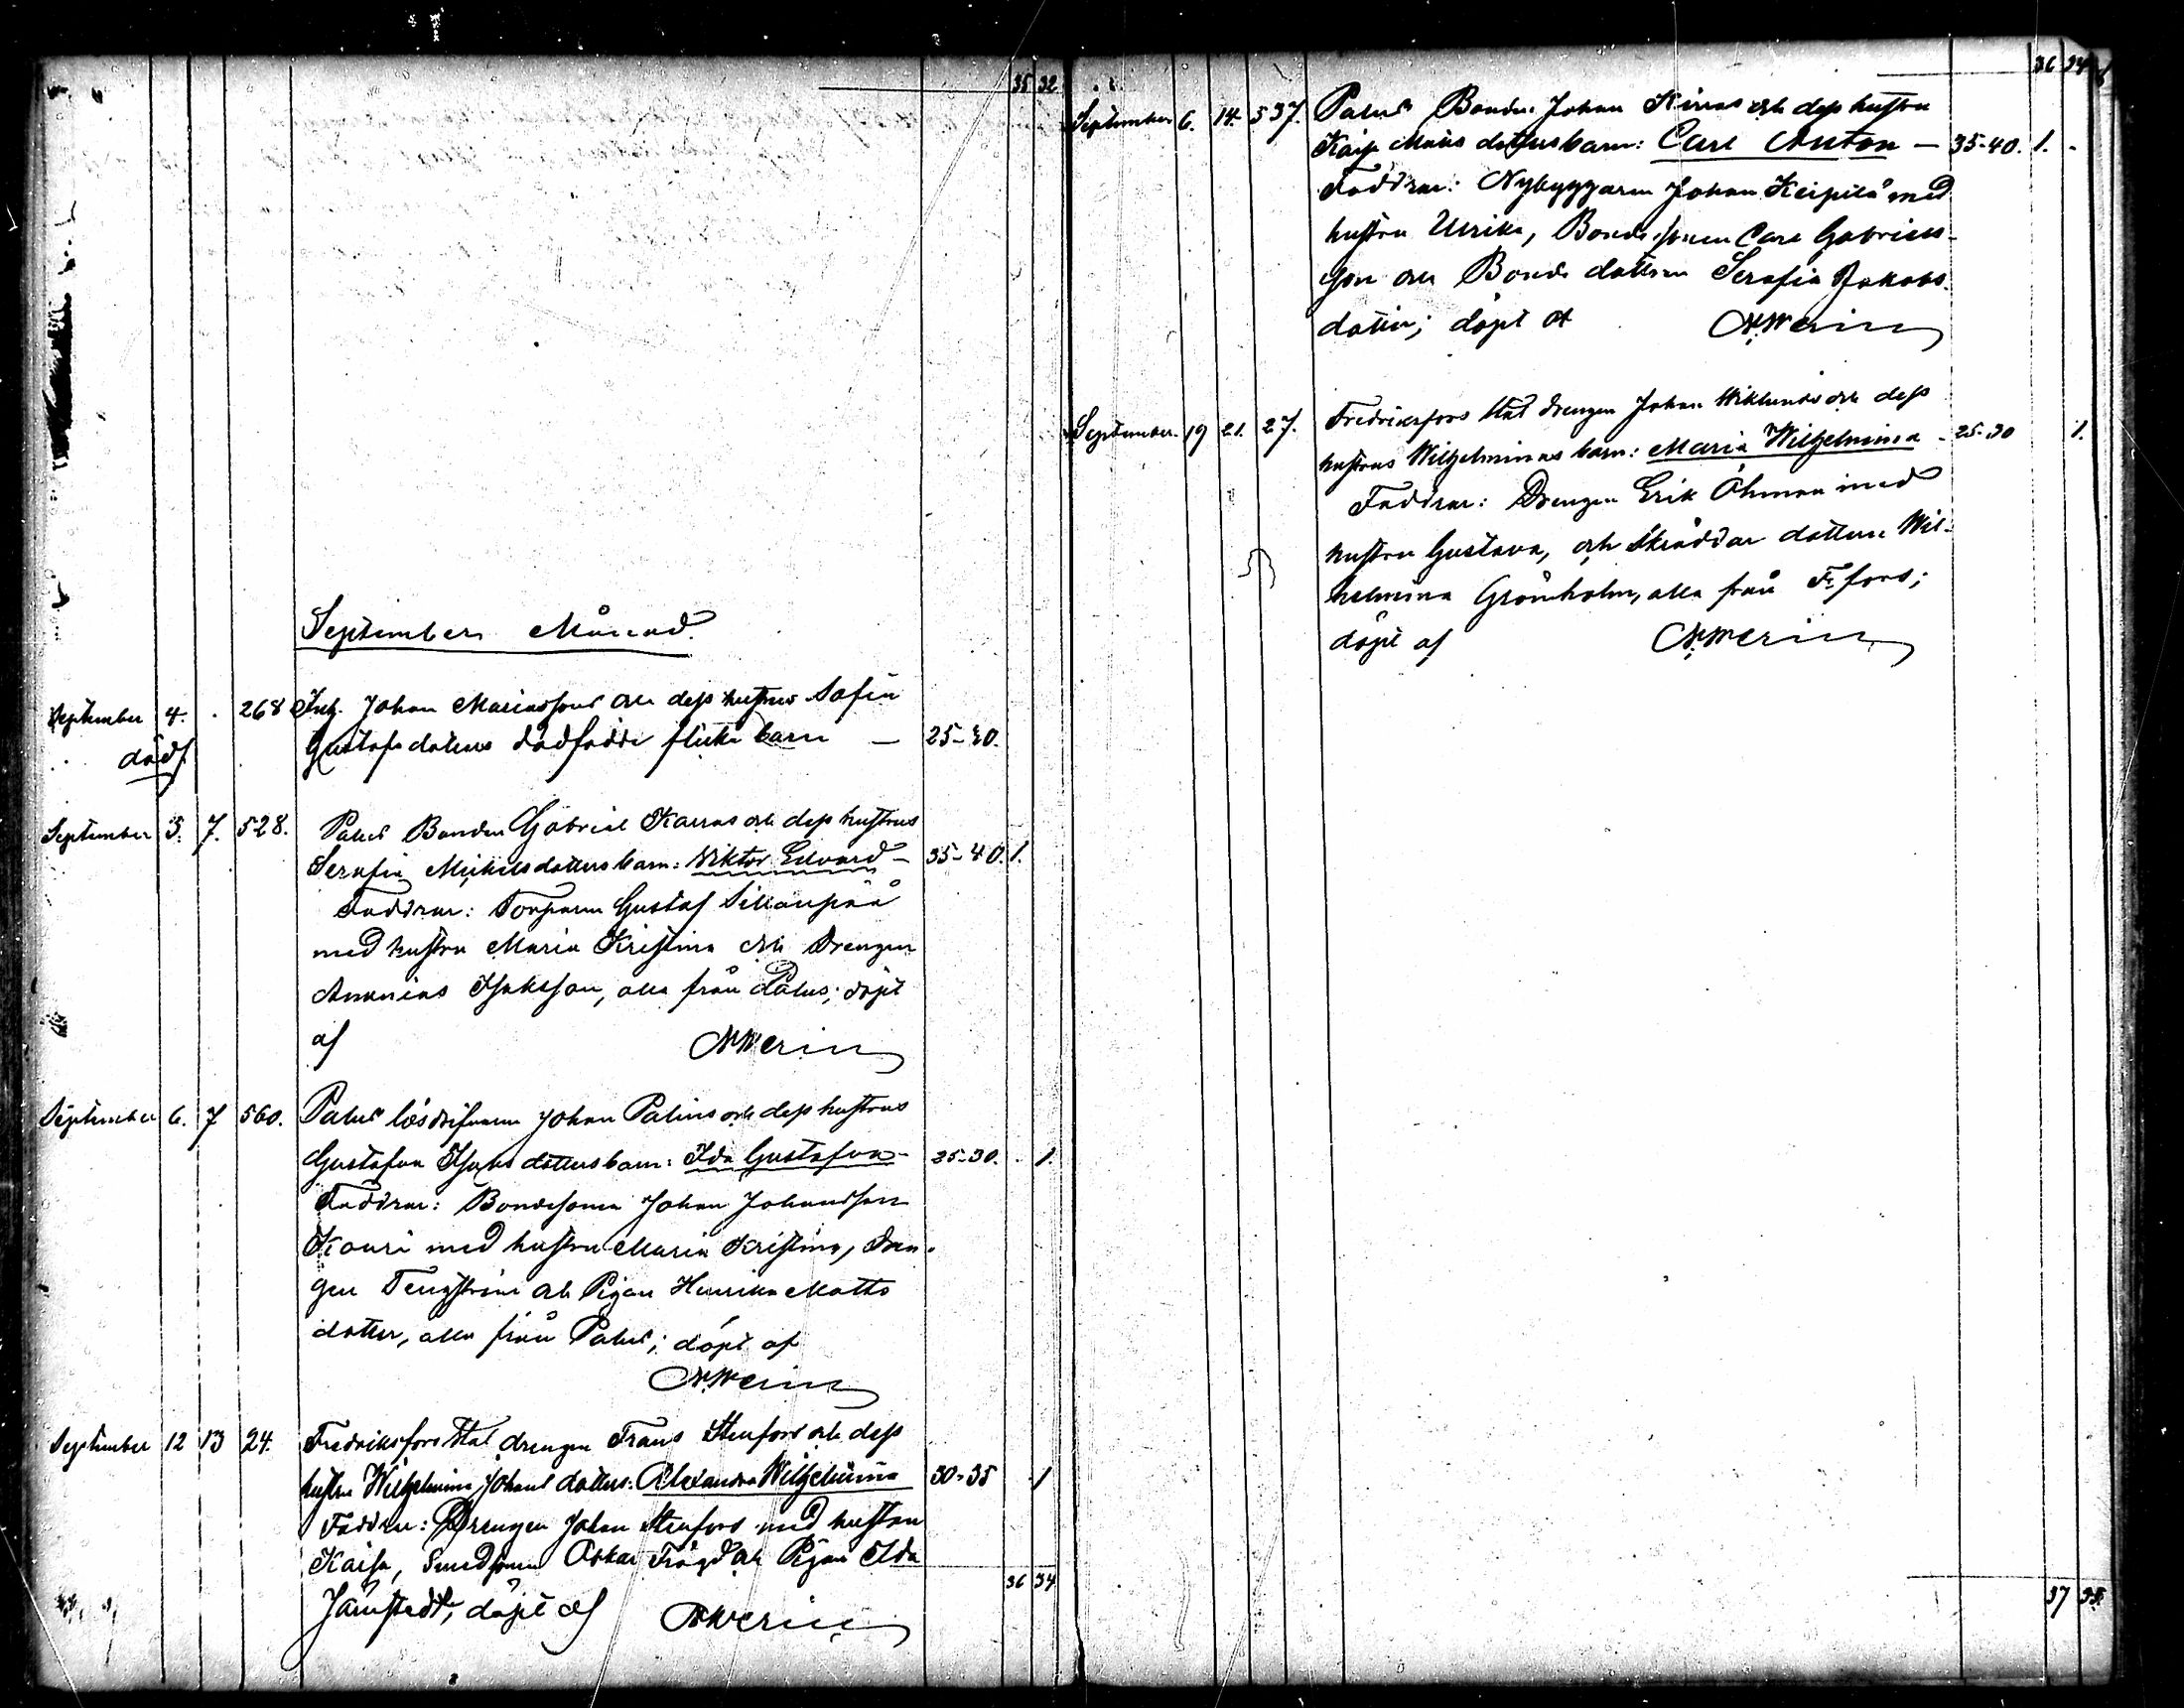 35 32
September Månad.
September 4. 268 Inh. Johan Mariassons och dess hustrus Sofia
dödf. Gustafsdotters dödfödde flicke barn — 25-30.
September 5. 7. 528. Palus Bonden Gabriel Karras och dess hustrus
Serafia Mickelsdotters barn: Viktor Edvard — 35-40. 1.
Faddrar: Torparen Gustaf Sillanpää
med hustru Maria Kristina och Drengen
Ananias Isaksson, alla från Palus; döpt
af NWerin
September 6. 7 560. Palus lösdrifvaren Johan Palins och dess hustrus
Gustafva Isaks dotters barn: Ida Gustafva - 25-30. 1.
Faddrar: Bondesonen Johan Johansson
Kauri med hustru Maria Kristina, Dren-
gen Tengström och Pigan Henrika Matts
dotter, alla från Palus; döpt af
N.Werin
September 12 13 24. Fredriksfors Stat drengen Frans Stenfors och dess
hustru Wilhelmina Johans dotters: Alexandra Wilhelmina 30-35 1
Faddrar: Drengen Johan Stenfors med hustru
Kaisa, Smedsonen Oskar Frögd och Pigan Ida
36 34
Jämstedt, döpt af NWerin
36 34
September 6. 14. 537. Palus Bonden Johan Kivias och dess hustru
Kaisa Matts dotters barn: Carl Anton — 35-40. 1.
Faddrar: Nybyggaren Johan Keipilä med
hustru Ulrika, Bonde sonen Carl Gabriels-
son och Bonde dottren Serafia Jakobs-
dotter; döpt af N.Werin
September 19 21. 27. Fredriksfors Stat drengen Johan Wiklunds och dess
hustrus Wilhelminas barn: Maria Wilhelmina - 25-30 1.
Faddrar: Drengen Erik Öhman med
hustru Gustava, och Skräddar dottren Wil-
helmina Grönholm, alla från F.fors;
döpt af N.Werin
37 35